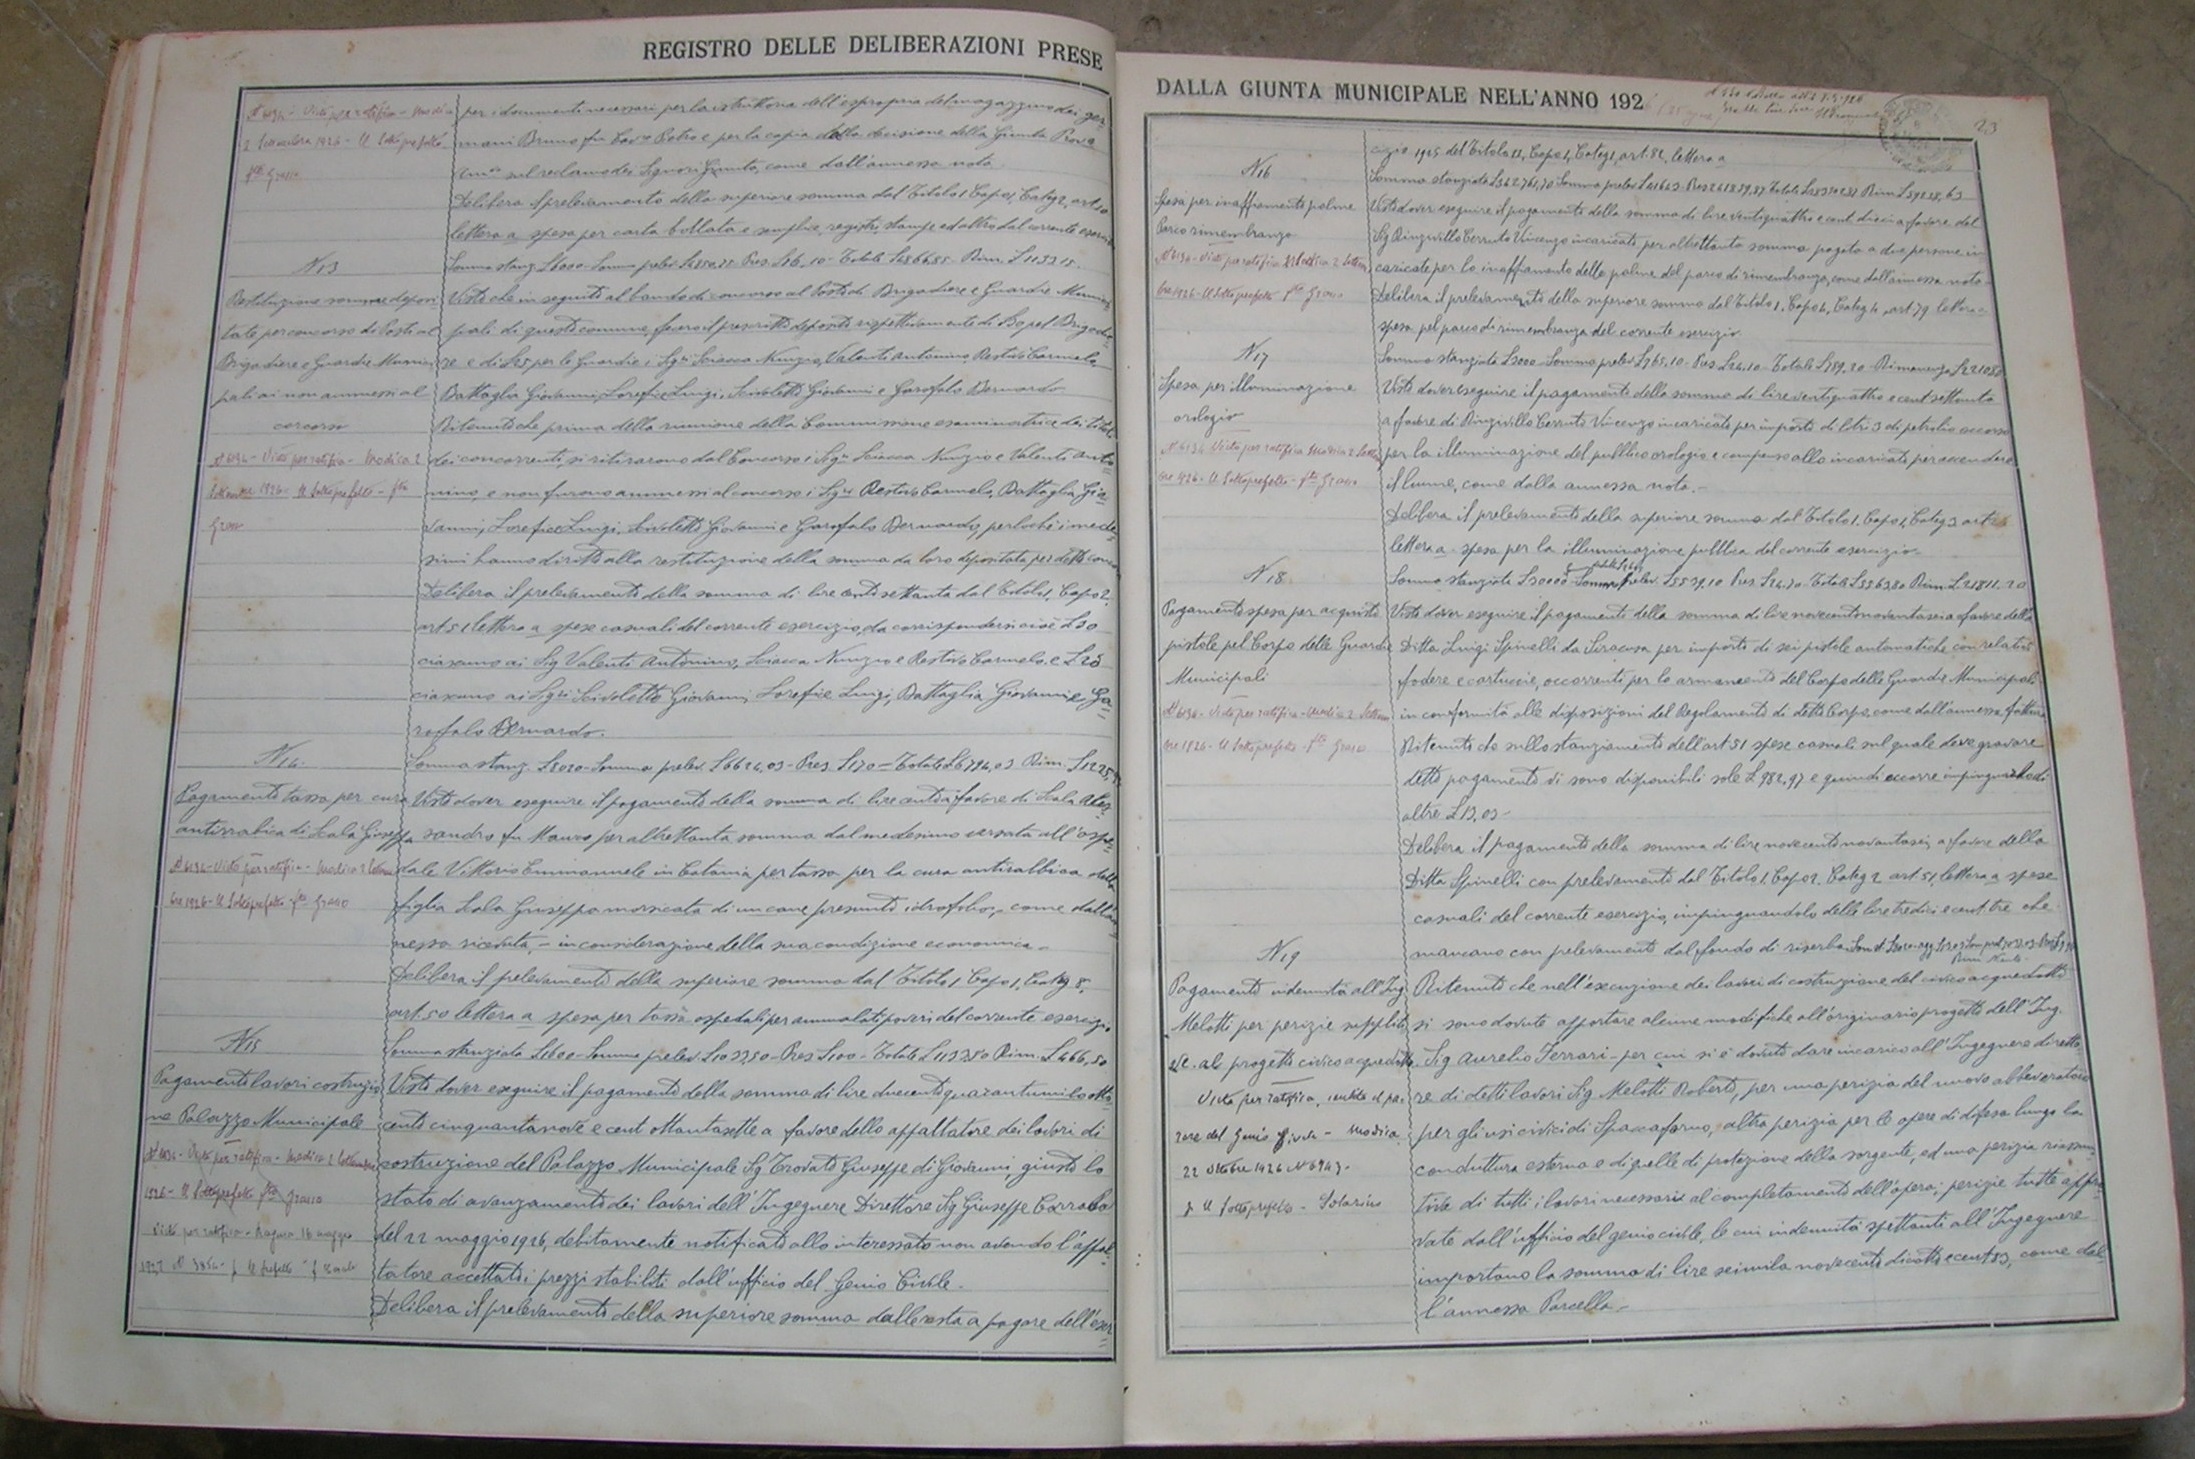 REGISTRO DELLE DELIBERAZIONI PRESE
per i documenti necessari per la istruttoria dell'espropria del magazzino dei ger=
mani Bruno fu Cav. Pietro e per la copia della decisione della Giunta Prov.
sul reclamo dei Signori Giunta, come dall'annessa nota
Delibera il prelevamento della superiore somma dal Titolo 1 Capo 1, Categ 2, art. 10
lettera a spesa per carta bollata e semplice, registri, stampe ed altro dal corrente eserci
N 13
Somma stanz. L 6000 - Somma prelev. L 4850,75 - Pres. L 16,10 - Totale L 4866,85 - Rim. L 1133,15.
Restituzione somme deposi
tate per concorso di Posti al
Brigadiere e Guardie Munici
pali ai non ammessi al
concorso
N 4134 - Visto per ratifica - Modica 2
Settembre 1926 - Il Sottoprefetto - fto
Grasso
Visto che in seguito al bando di concorso al Posto di Brigadiere e Guardie Munici
pali di questo comune, fecero il prescritto deposito rispettivamente di L 50 pel Brigadie
re e di L 25 per le Guardie, i Sgri Sciacca Nunzio, Valenti Antonino Restivo Carmelo,
Battaglia Giovanni, Lorefice Luigi, Scivoletto Giovanni e Garofalo Bernardo
Ritenuto che prima della riunione della Commissione esaminatrice dei titoli
dei concorrenti, si ritirarono dal Concorso i Sigri Sciacca Nunzio e Valenti Anto
nino e non furono ammessi al concorso i Sgri Restivo Carmelo, Battaglia Gio
vanni, Lorefice Luigi, Scivoletto Giovanni e Garofalo Bernardo, perlochè i mede
simi hanno diritto alla restituzione della somma da loro depositata per detto conc
Delibera il prelevamento della somma di lire cento settanta dal Titolo 1, Capo 2,
art. 51 lettera a spese casuali del corrente esercizio, da corrispondersi cioè L 30
ciascuno ai Sig Valenti Antonino, Sciacca Nunzio e Restivo Carmelo e L 20
ciascuno ai Sgri Scivoletto Giovanni, Lorefice Luigi, Battaglia Giovanni e Ga
rofalo Bernardo.
N 14
Somma stanz. L 8020 - Somma prelev. L 6624,03 - Pres. L 170 - Totale L 6794,03 Rim. L 1225
Pagamento tassa per cura
antirrabica di Scala Giuseppa
N 4134 - Visto per ratifica - Modica 2 Settem
bre 1926 - Il Sottoprefetto - fto Grasso
Visto dover eseguire il pagamento della somma di lire cento a favore di Scala Ales
sandro fu Mauro per altrettanta somma dal medesimo versata all'ospe
dale Vittorio Emmanuele in Catania per tassa per la cura antirabbica della
figlia Scala Giuseppa morsicata di un cane presunto idrofobo, come dall'an
nessa ricevuta, - in considerazione della sua condizione economica -
Delibera il prelevamento della superiore somma dal Titolo 1 Capo 1, Categ 8,
art. 50 lettera a spesa per tassa ospedali per ammalati poveri del corrente esercizio
N 15
Somma stanziata L 1600 - Somma prelev. L 1033,50 - Pres. L 100 - Totale L 1133,50 Rim. L 466,50
Pagamento lavori costruzio
ne Palazzo Municipale
N 4134 - Visto per ratifica - Modica 2 Settembre
1926 - Il Sottoprefetto fto Grasso
Visto per ratifica - Ragusa 16 maggio
Visto dover eseguire il pagamento della somma di lire duecentoquarantunila otto
cento cinquantanove e cent ottantasette a favore dello appaltatore dei lavori di
costruzione del Palazzo Municipale Sg Trovato Giuseppe di Giovanni, giusto lo
stato di avanzamento dei lavori dell'Ingegnere Direttore Sig Giuseppe
del 22 maggio 1926, debitamente notificato allo interessato non avendo l'appal
tatore accettato i prezzi stabiliti dall'ufficio del Genio Civile.
Delibera il prelevamento della superiore somma dalle resta a pagare dell'eser
DALLA GIUNTA MUNICIPALE NELL'ANNO 192
23
cizio 1925 del Titolo 12, Capo 1, Categ 1, art. 82, lettera a
N 16
Spesa per inaffiamento palme
Parco rimembranza
N 4134 - Visto per ratifica Modica 2 Settem
bre 1926 - Il Sottoprefetto fto Grasso
Visto dover eseguire il pagamento della somma di lire ventiquattro e cent. dieci a favore del
Sig Rinzivillo Cerruto Vincenzo incaricato per altrettanta somma pagata a due persone in
caricate per lo inaffiamento delle palme del parco di rimembranza, come dall'annessa nota -
Delibera il prelevamento della superiore somma dal Titolo 1, Capo 4, Categ 4, art. 79 lettera a
spesa pel parco di rimembranza del corrente esercizio
N 17
Spesa per illuminazione
orologio
N 4134 Visto per ratifica Modica 2 Settem
bre 1926 - Il Sottoprefetto - fto Grasso
Visto dover eseguire il pagamento della somma di lire ventiquattro e cent settanta
a favore di Rinzivillo Cerruto Vincenzo incaricato per importo di litri 3 di petrolio occorso
per la illuminazione del pubblico orologio e compenso allo incaricato per accendere
il lume, come dalla annessa nota. -
Delibera il prelevamento della superiore somma dal Titolo 1, Capo 1, Categ 3
lettera a spesa per la illuminazione pubblica del corrente esercizio -
N 18
Pagamento spesa per acquisto
pistole pel Corpo delle Guardie
Municipali
N 4134 - Visto per ratifica - Modica 2 Settem
bre 1926 - Il Sottoprefetto - fto Grasso
Visto dover eseguire il pagamento della somma di lire novecentonovantasei a favore della
Ditta Luigi Spinelli da Siracusa per importo di sei pistole automatiche con relative
fodere e cartuccie, occorrenti per lo armamento del Corpo delle Guardie Municipali
in conformità alle disposizioni del Regolamento di detto Corpo, come dall'annessa fattura
Ritenuto che sullo stanziamento dell'art. 51 spese casuali sul quale deve gravare
detto pagamento vi sono disponibili sole L 982,97 e quindi occorre impinguarlo di
altre L 13,03 -
Delibera il pagamento della somma di lire novecento novantasei a favore della
Ditta Spinelli con prelevamento dal Titolo 1, Capo 2, Categ 2 art. 51, lettera a spese
casuali del corrente esercizio, impinguandolo delle lire tredici e cent. tre che
mancano con prelevamento dal fondo di riserba
N 19
Pagamento indennità all'Ing
Melotti per perizie supplite
ec. al progetto civico acquedotto
Visto per ratifica, sentito il pa-
rere del Genio Civile - Modica
22 ottobre 1926 N 6943 -
p. Il Sottoprefetto - Solarino
Ritenuto che nell'esecuzione dei lavori di costruzione del civico acquedotto
si sono dovute apportare alcune modifiche all'originario progetto dell'Ing.
Sig Aurelio Ferrari - per cui si è dovuto dare incarico all'Ingegnere diretto
re di detti lavori Sig Melotti Roberto, per una perizia del nuovo abbeveratoio
per gli usi civici di Spaccaforno, altra perizia per le opere di difesa lungo la
conduttura esterna e di quelle di protezione della sorgente, ed una perizia riassun
tiva di tutti i lavori necessari al completamento dell'opera; perizie tutte appro
vate dall'ufficio del genio civile, le cui indennità spettanti all'Ingegnere
importano la somma di lire seimila novecento diciotto e cent 83, come dal
l'annessa Parcella -